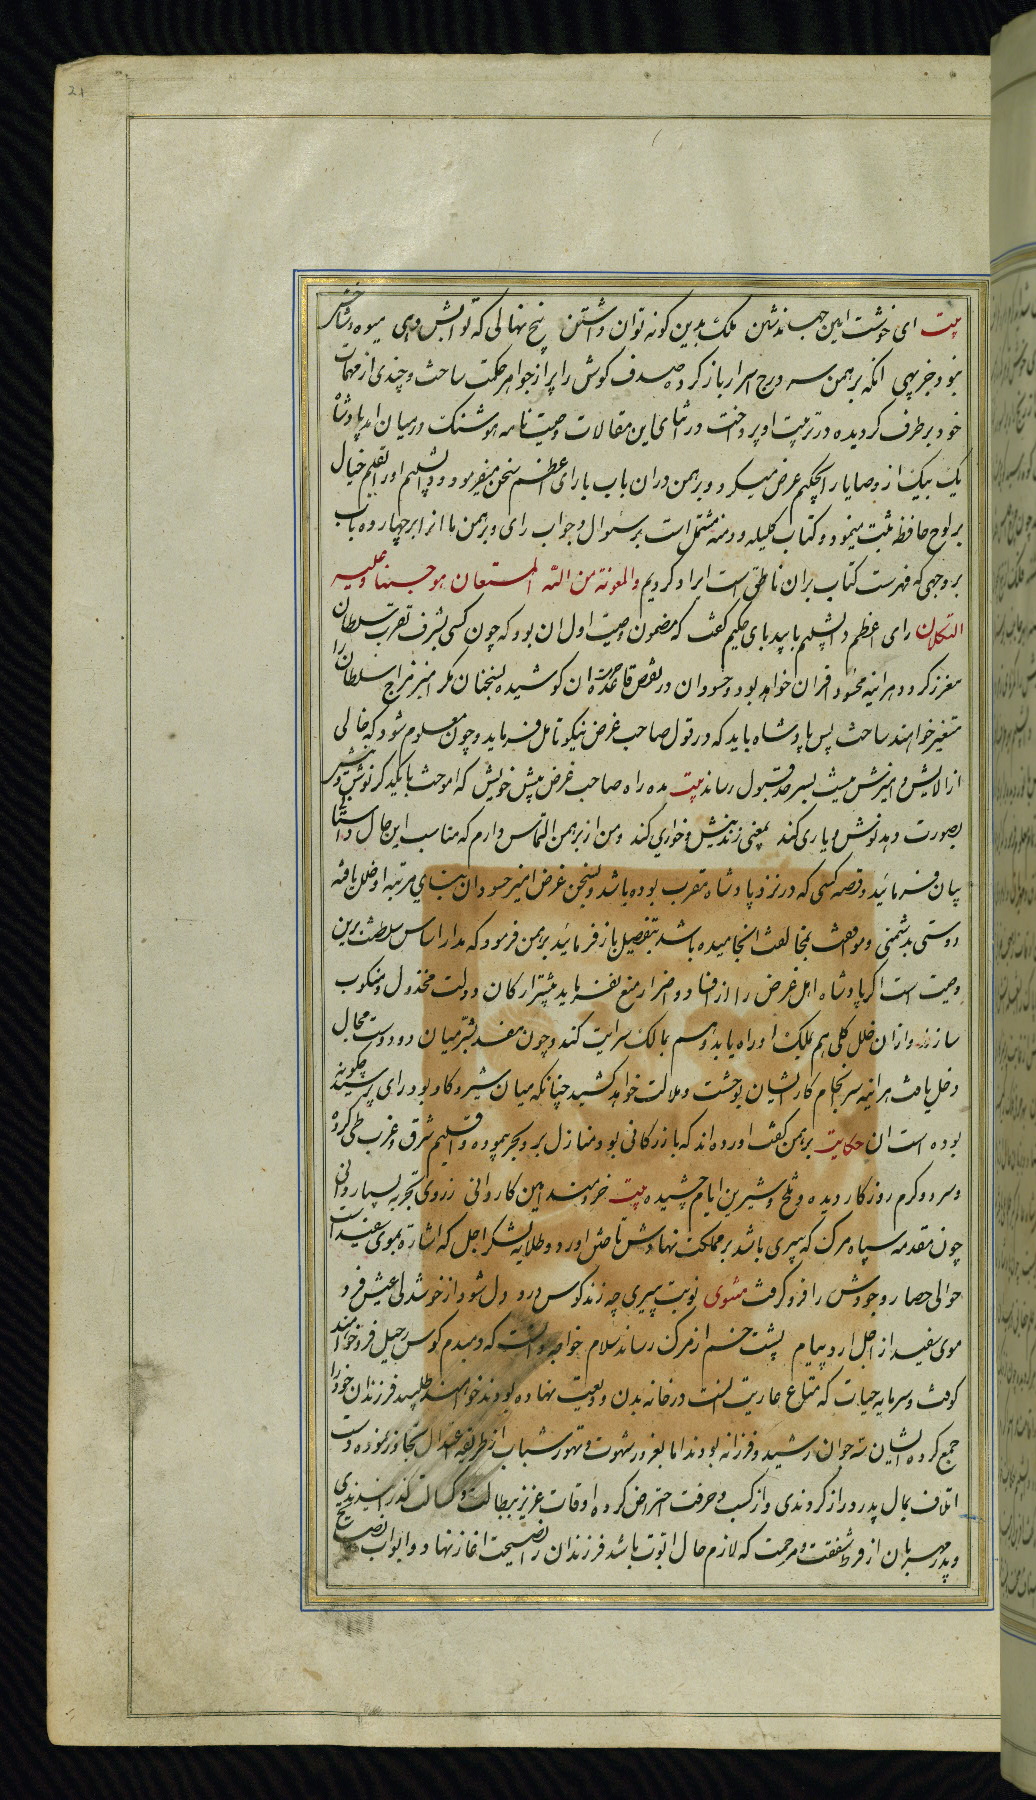 21
بیت ای خوشت این جهاندشتن ملک بدین کونه توان داشتن بیخ نهالی که تو آبش دهی میوه شاخش
نبود جز بهی انکه برهمن سه درج اسرار باز کرده صدف کوش را پر از جواهر حکمت ساخت و چندی از مهمات
خود بر طرف کردیده در تربیت او پرداخت و در اثنای این مقالات وصیت نامه هوشنک در میان امد پادشاه
یک بیک از وصایا را بحکیم عرض میکرد و برهمن دران باب با رای اعظم سخن میفرمود و دابشلیم اورا بقلم خیال
بر لوح حافظه ثبت مینمود و کتاب کلیله و دمنه مشتمل است بر سئوال و جواب رای و برهمن ما انرا بر چهارده باب
بر وجهی که فهرست کتاب بران ناطق است ایراد کردیم والمعونة من الله المستعان هو حسبنا وعلیه
التکلان رای اعظم دابشلیم با بیدپای حکیم کفت که مضمون وصیت اول ان بود که چون کسی بشرف تقرب سلطان
معزز کردد هراینه محسود اقران خواهد بود و حسودان در نقض قاعده حرمت ان کوشیده بسخنان مکر امیز مزاج سلطان را
متغیر خواهند ساخت پس پادشاه باید که در قول صاحب غرض نیکو تامل فرماید و چون معلوم شود که خالی
از الایش و امیزش نیست بسرحد قبول نرساند بیت مده راه صاحب غرض پیش خویش که امیخت با یکدکر نوش و نیش
بصورت دهد نوش و یاری کند بمعنی زند نیش و خواری کند و من از برهمن التماس دارم که مناسب این حال داستانی
بیان فرمائید و قصه کسی که در نزد پادشاه مقرب بوده باشد و بسخن غرض امیز حسودان بنای مرتبه او خلل یافته
دوستی بدشمنی و موافقت بمخالفت انجامیده باشد بتفصیل باز فرمائید برهمن فرمود که مدار اساس سلطنت برین
وصیت است اکر پادشاه اهل غرض را از افساد و اضرار منع نفرماید بیشتر ارکان دولت مخذول و منکوب
سازند و ازان خلل کلی هم بملک او راه یابد و هم بمالک سرایت کند و چون مفسد شریر میان دو دوست مجال
دخل یافت هراینه سرانجام کار ایشان بوحشت و ملالت خواهد کشید چنانکه میان شیر و کاو بود رای پرسید چکونه
بوده است ان حکایت برهمن کفت اورده اند که بازرکانی بود منازل بر و بحر پیموده و اقلیم شرق و غرب طی کرده
و سرد و کرم روزکار دیده و تلخ و شیرین ایام چشیده بیت خردمند امین کاروانی زروی تجربه بسیار دانی
چون مقدمه سپاه مرک که پیری باشد بر مملکت نهادش تاختن اورد و طلایه لشکر اجل که اشارت بموی سفید است
حوالی حصار وجودش را فرو کرفت مثنوی نوبت پیری چه زند کوس درد دل شود از خوشدلی عیش فرد
موی سفید از اجل ارد پیام پشت خم از مرک رساند سلام خواجه دانست که دمبدم کوس رحیل فرو خواهند
کوفت و سرمایه حیات که متاع عاریت است در خانه بدن ودیعت نهاده بودند خواهند طلبید فرزندان خود را
جمع کرده و ایشان سه جوان رشید و فرزانه بودند اما بغرور شهوت و تهور شباب از طریقه اعتدال تجاوز نموده دست
اتلاف بمال پدر دراز کردندی و از کسب و حرفت اعتراض کرده اوقات عزیز ببطالت و کسالت کذرانیدندی
و پدر مهربان از فرط شفقت و مرحمت که لازم حال ابوت باشد فرزندان را نصیحت اغاز نهاد و ابواب نصیح